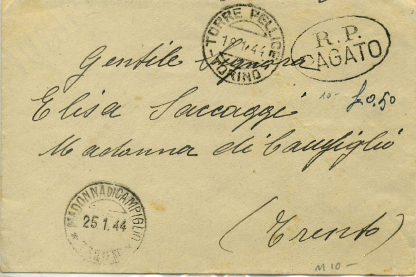 TORRE PELLICE
1.44
TORINO
R.P.
PAGATO
Gentile Signora
10-
£0,50
Elisa Saccaggi
Madonna di Campiglio
MADONNA DI CAMPIGLIO
25 1.44
(Trento)
M10-